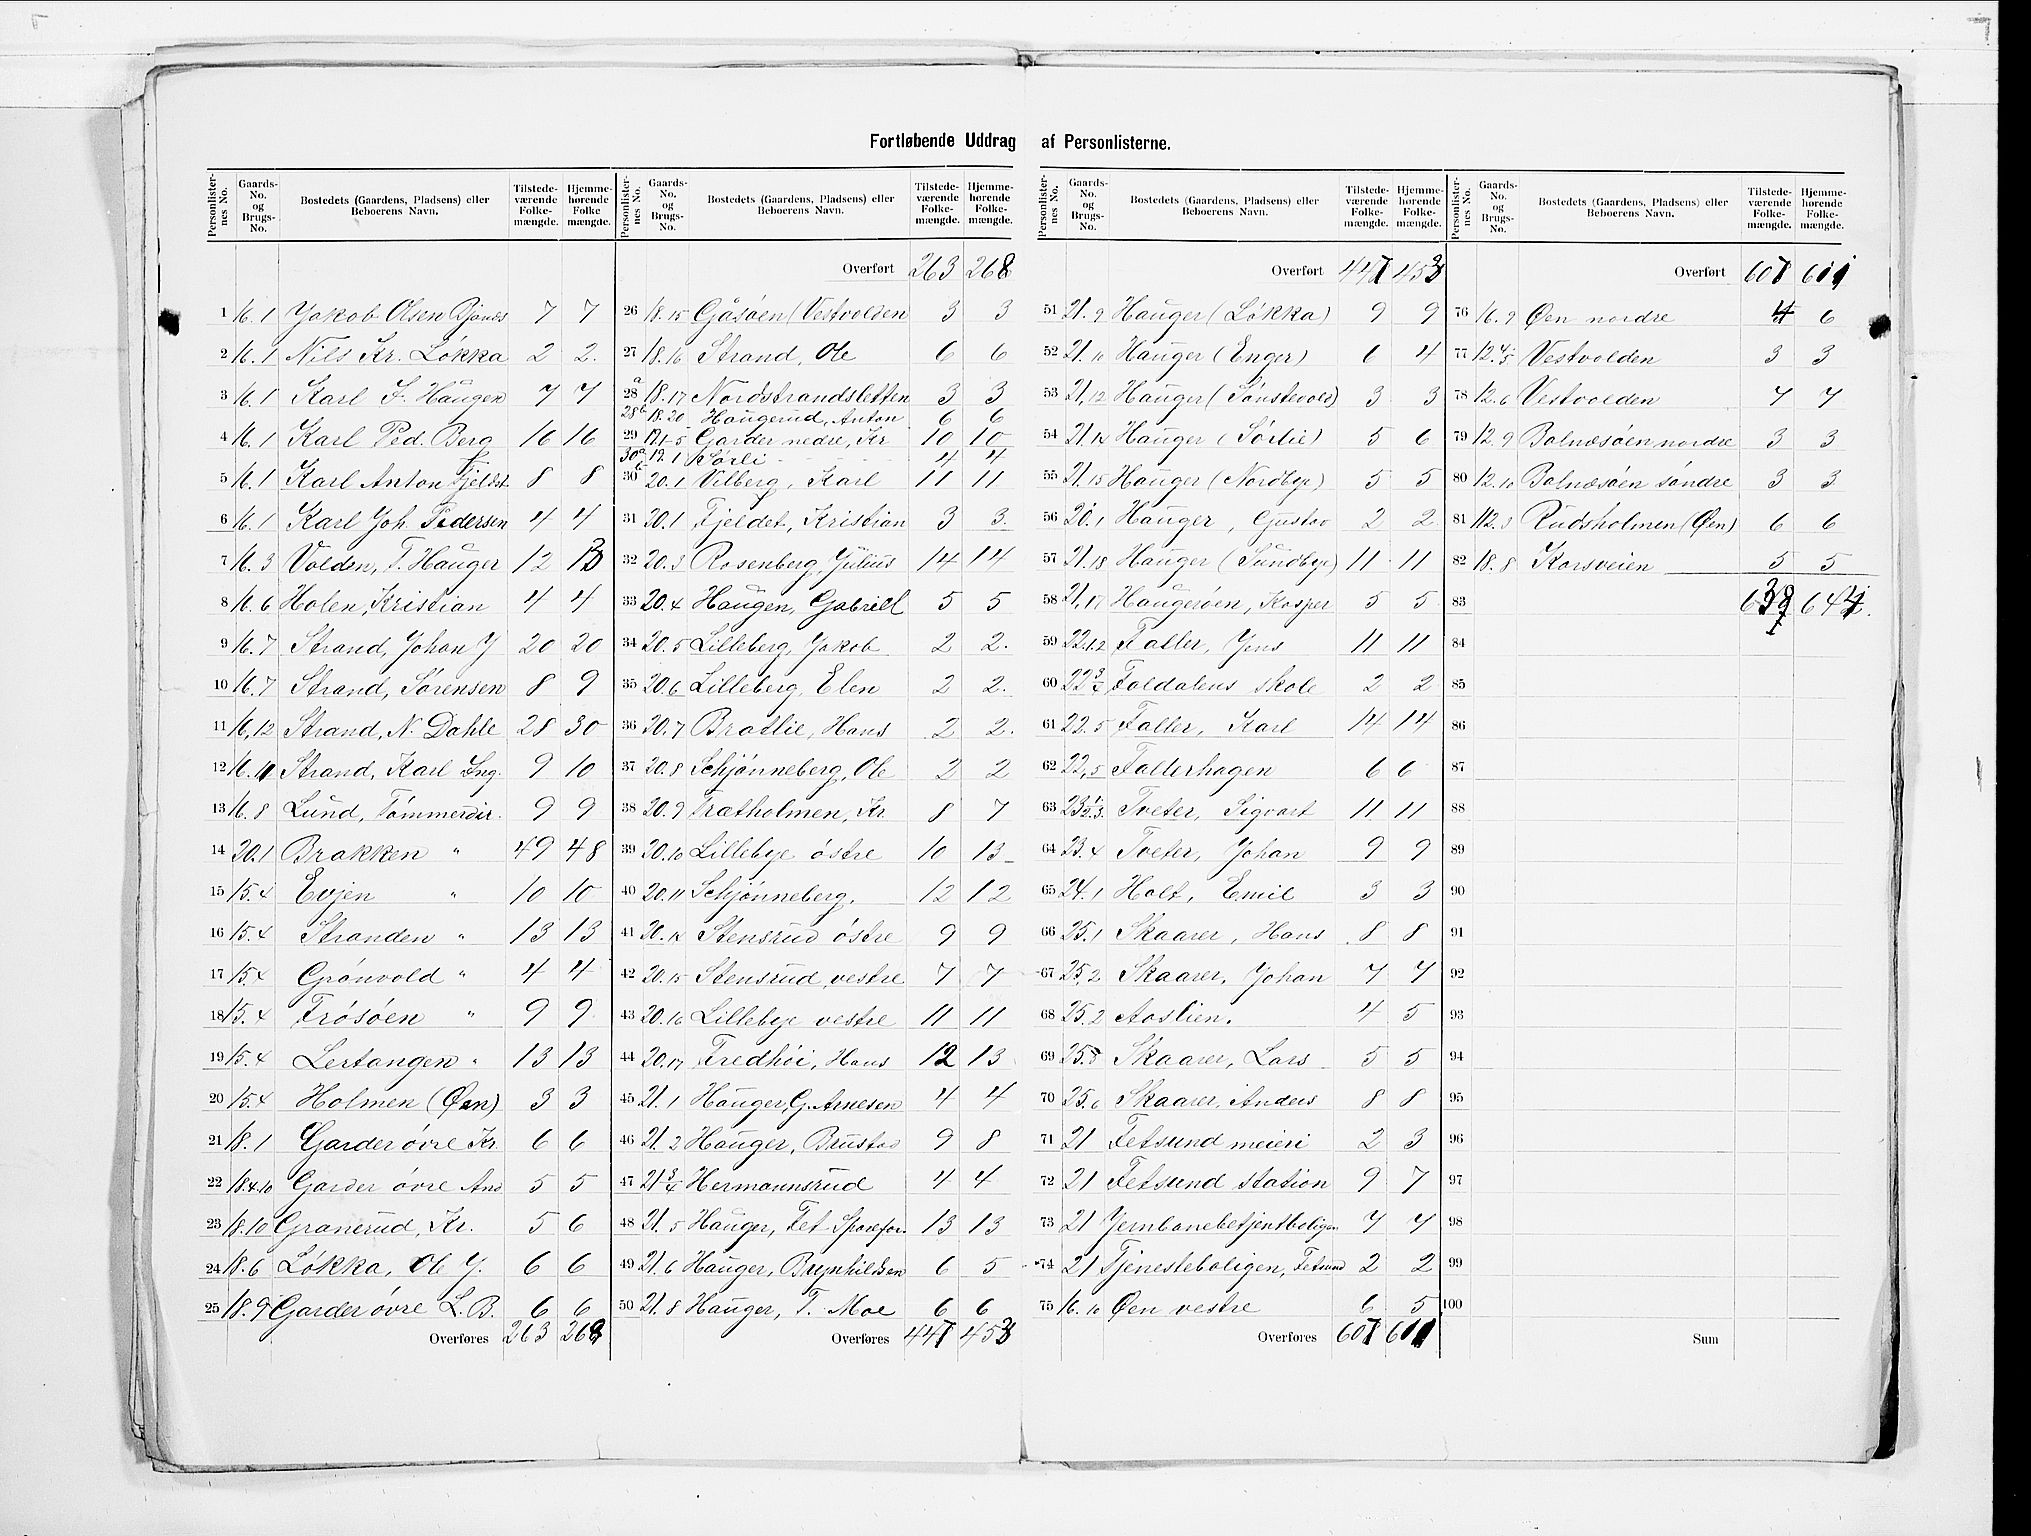 Fortløbende Uddrag af Personlisterne.
Personlister-nes No. Gaards-No. og Brugs-No. Bostedets (Gaardens, Pladsens) eller Beboerens Navn. Tilstede-værende Folke-mængde. Hjemme-hørende Folke-mængde.
1 16.1 Jakob Olsen 7 7
2 16.1 Nils Kr. Løkka 2 2.
3 16.1 Karl F. Haugen 7 7
4 16.1 Karl Ped. Berg 16 16
5 16.1 Karl Anton Fjeldst 8 8
6 16.1 Karl Joh. Pedersen 4 4
7 16.3 Volden, T. Hauger 12
8 16.6 Holen, Kristian 4 4
9 16.7 Strand, Johan J 20 20
10 16.7 Strand, Sørensen 8 9
11 16.12 Strand, N. Dahle 28 30
12 16.11 Strand, Karl Ing. 9 10
13 16.8 Lund, Tømmerdir. 9 9
14 20.1 Brakken " 49 48
15 15.4 Evjen " 10 10
16 15.4 Stranden " 13 13
17 15.4 Grönvold " 4 4
18 15.4 Frösöen " 9 9
19 15.4 Lertangen " 13 13
20 15.4 Holmen (Øen) 3 3
21 18.1 Garder övre Kr. 6 6
22 18.4.10 Garder övre And 5 5
23 18.10 Granerud, Kr. 5 6
24 18.6 Løkka, Ole J. 6 6
25 18.9 Garder övre L.B. 6 6
Overføres 263 268
Personlister-nes No. Gaards-No. og Brugs-No. Bostedets (Gaardens, Pladsens) eller Beboerens Navn. Tilstede-værende Folke-mængde. Hjemme-hørende Folke-mængde.
Overført 263 268
26 18.15 Gåsöen (Vestvolden 3 3
27 18.16 Strand, Ole 6 6
28a 18.17 Nordstrandsletten 3 3
28b 18.20 Haugerud, Anton 6 6
29 19.1-5 Garder nedre, Kr 10 10
30a 19.1 Sørli 4 4
30b 20.1 Vilberg, Karl 11 11
31 20.1 Fjeldet, Kristian 3 3
32 20.3 Rosenberg, Julius 14 14
33 20.4 Haugen, Gabriel 5 5
34 20.5 Lilleberg, Jakob 2 2.
35 20.6 Lilleberg, Elen 2 2.
36 20.7 Bratlie, Hans 2 2.
37 20.8 Schjönneberg, Ole 2 2
38 20.9 Trætholmen, Kr. 8 7
39 20.10 Lillebye östre 10 13
40 20.11 Schjönneberg. 12 12
41 20.14 Stensrud östre 9 9
42 20.15 Stensrud vestre 7 7
43 20.16 Lillebye vestre 11 11
44 20.17 Fredhöi, Hans 12 13
45 21.1 Hauger, G. Arnesen 4 4
46 21.2 Hauger, Brustad 9 8
47 21.3/4 Hermannsrud 4 4
48 21.5 Hauger, Fet Sparefor. 13 13
49 21.6 Hauger, Brynhildsen 6 5
50 21.8 Hauger, T. Moe 6 6
Overføres 447 453
Personlister-nes No. Gaards-No. og Brugs-No. Bostedets (Gaardens, Pladsens) eller Beboerens Navn. Tilstede-værende Folke-mængde. Hjemme-hørende Folke-mængde.
Overført 447 453
51 21.9 Hauger (Løkka) 9 9
52 21.10 Hauger (Enger) 6 4
53 21.12 Hauger (Sønstevold) 3 3
54 21.14 Hauger (Sørlie) 5 6
55 21.15 Hauger (Nordbye) 5 5
56 20.1 Hauger, Gustav 2 2
57 21.18 Hauger (Sundbye) 11 11
58 21.17 Haugeröen, Kasper 5 5
59 22.1.2 Faller, Jens 11 11
60 22.3/4 Faldalens skole 2 2
61 22.5 Faller, Karl 14 14
62 22.5 Fallerhagen 6 6
63 23.1/2.3 Tveter, Sigvart 11 11
64 23.4 Tveter, Johan 9 9
65 24.1 Holt, Emil 3 3
66 25.1 Skaarer, Hans 8 8
67 25.2 Skaarer, Johan 7 7
68 25.2 Aaslien. 4 5
69 25.8 Skaarer, Lars 5 5
70 25.6 Skaarer, Anders 8 8
71 21 Fetsund meieri 2 3
72 21 Fetsund station 9 7
73 21 Jernbanebetjentboligen 7 7
74 21 Tjenesteboligen, Fetsund 2 2
75 16.10 Øen vestre 6 5
Overføres 607 611
Personlister-nes No. Gaards-No. og Brugs-No. Bostedets (Gaardens, Pladsens) eller Beboerens Navn. Tilstede-værende Folke-mængde. Hjemme-hørende Folke-mængde.
Overført 607 611
76 16.9 Øen nordre 4 6
77 12.4/5 Vestvolden 3 3
78 12.6 Vestvolden 7 7
79 12.9 Balnæsöen nordre 3 3
80 12.10 Balnæsöen söndre 3 3
81 12.3 Rudsholmen (Øen) 6 6
82 18.8 Korsveien 5 5
83 644.
84
85
86
87
88
89
90
91
92
93
94
95
96
97
98
99
100
Sum